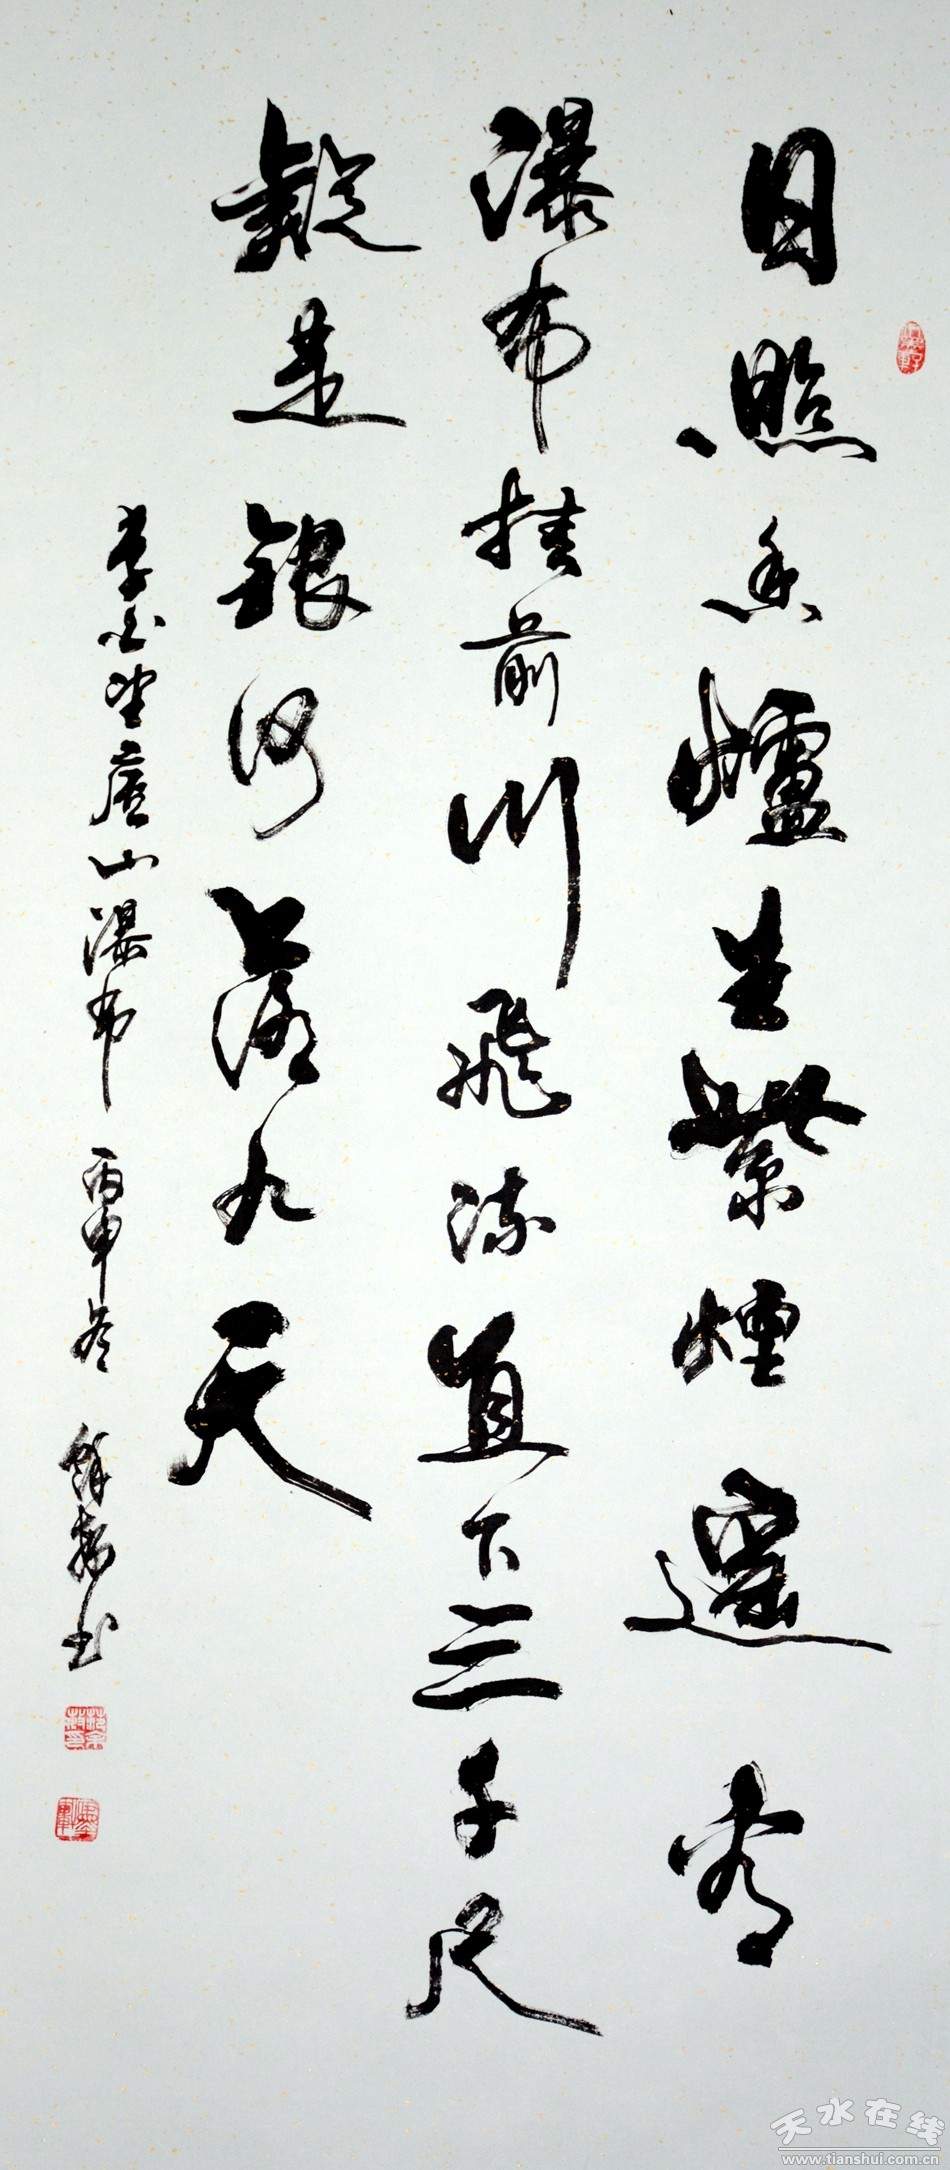 日照香爐生紫煙遙看
瀑布挂前川飛流直下三千尺
疑是銀河落九天
李白望廬山瀑布 丙申冬 书
天水在线
www.tianshui.com.cn